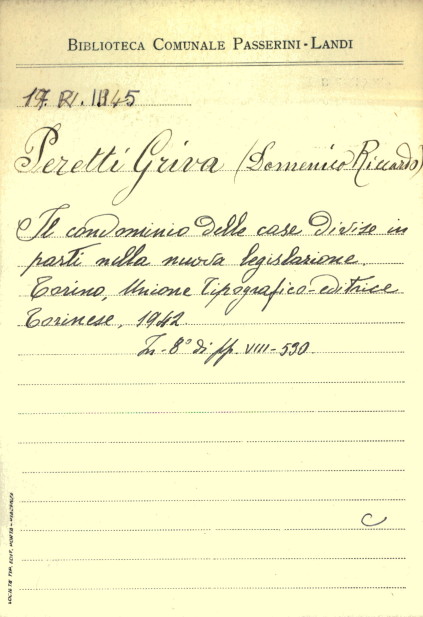 BIBLIOTECA COMUNALE PASSERINI-LANDI
Peretti Griva (Domenico Riccardo)
Il condominio delle case divise in
parti nella nuova legislazione.
Torino, Unione Tipografico-editrice
Torinese, 1942.
In-8° di pp. VIII-530.
C